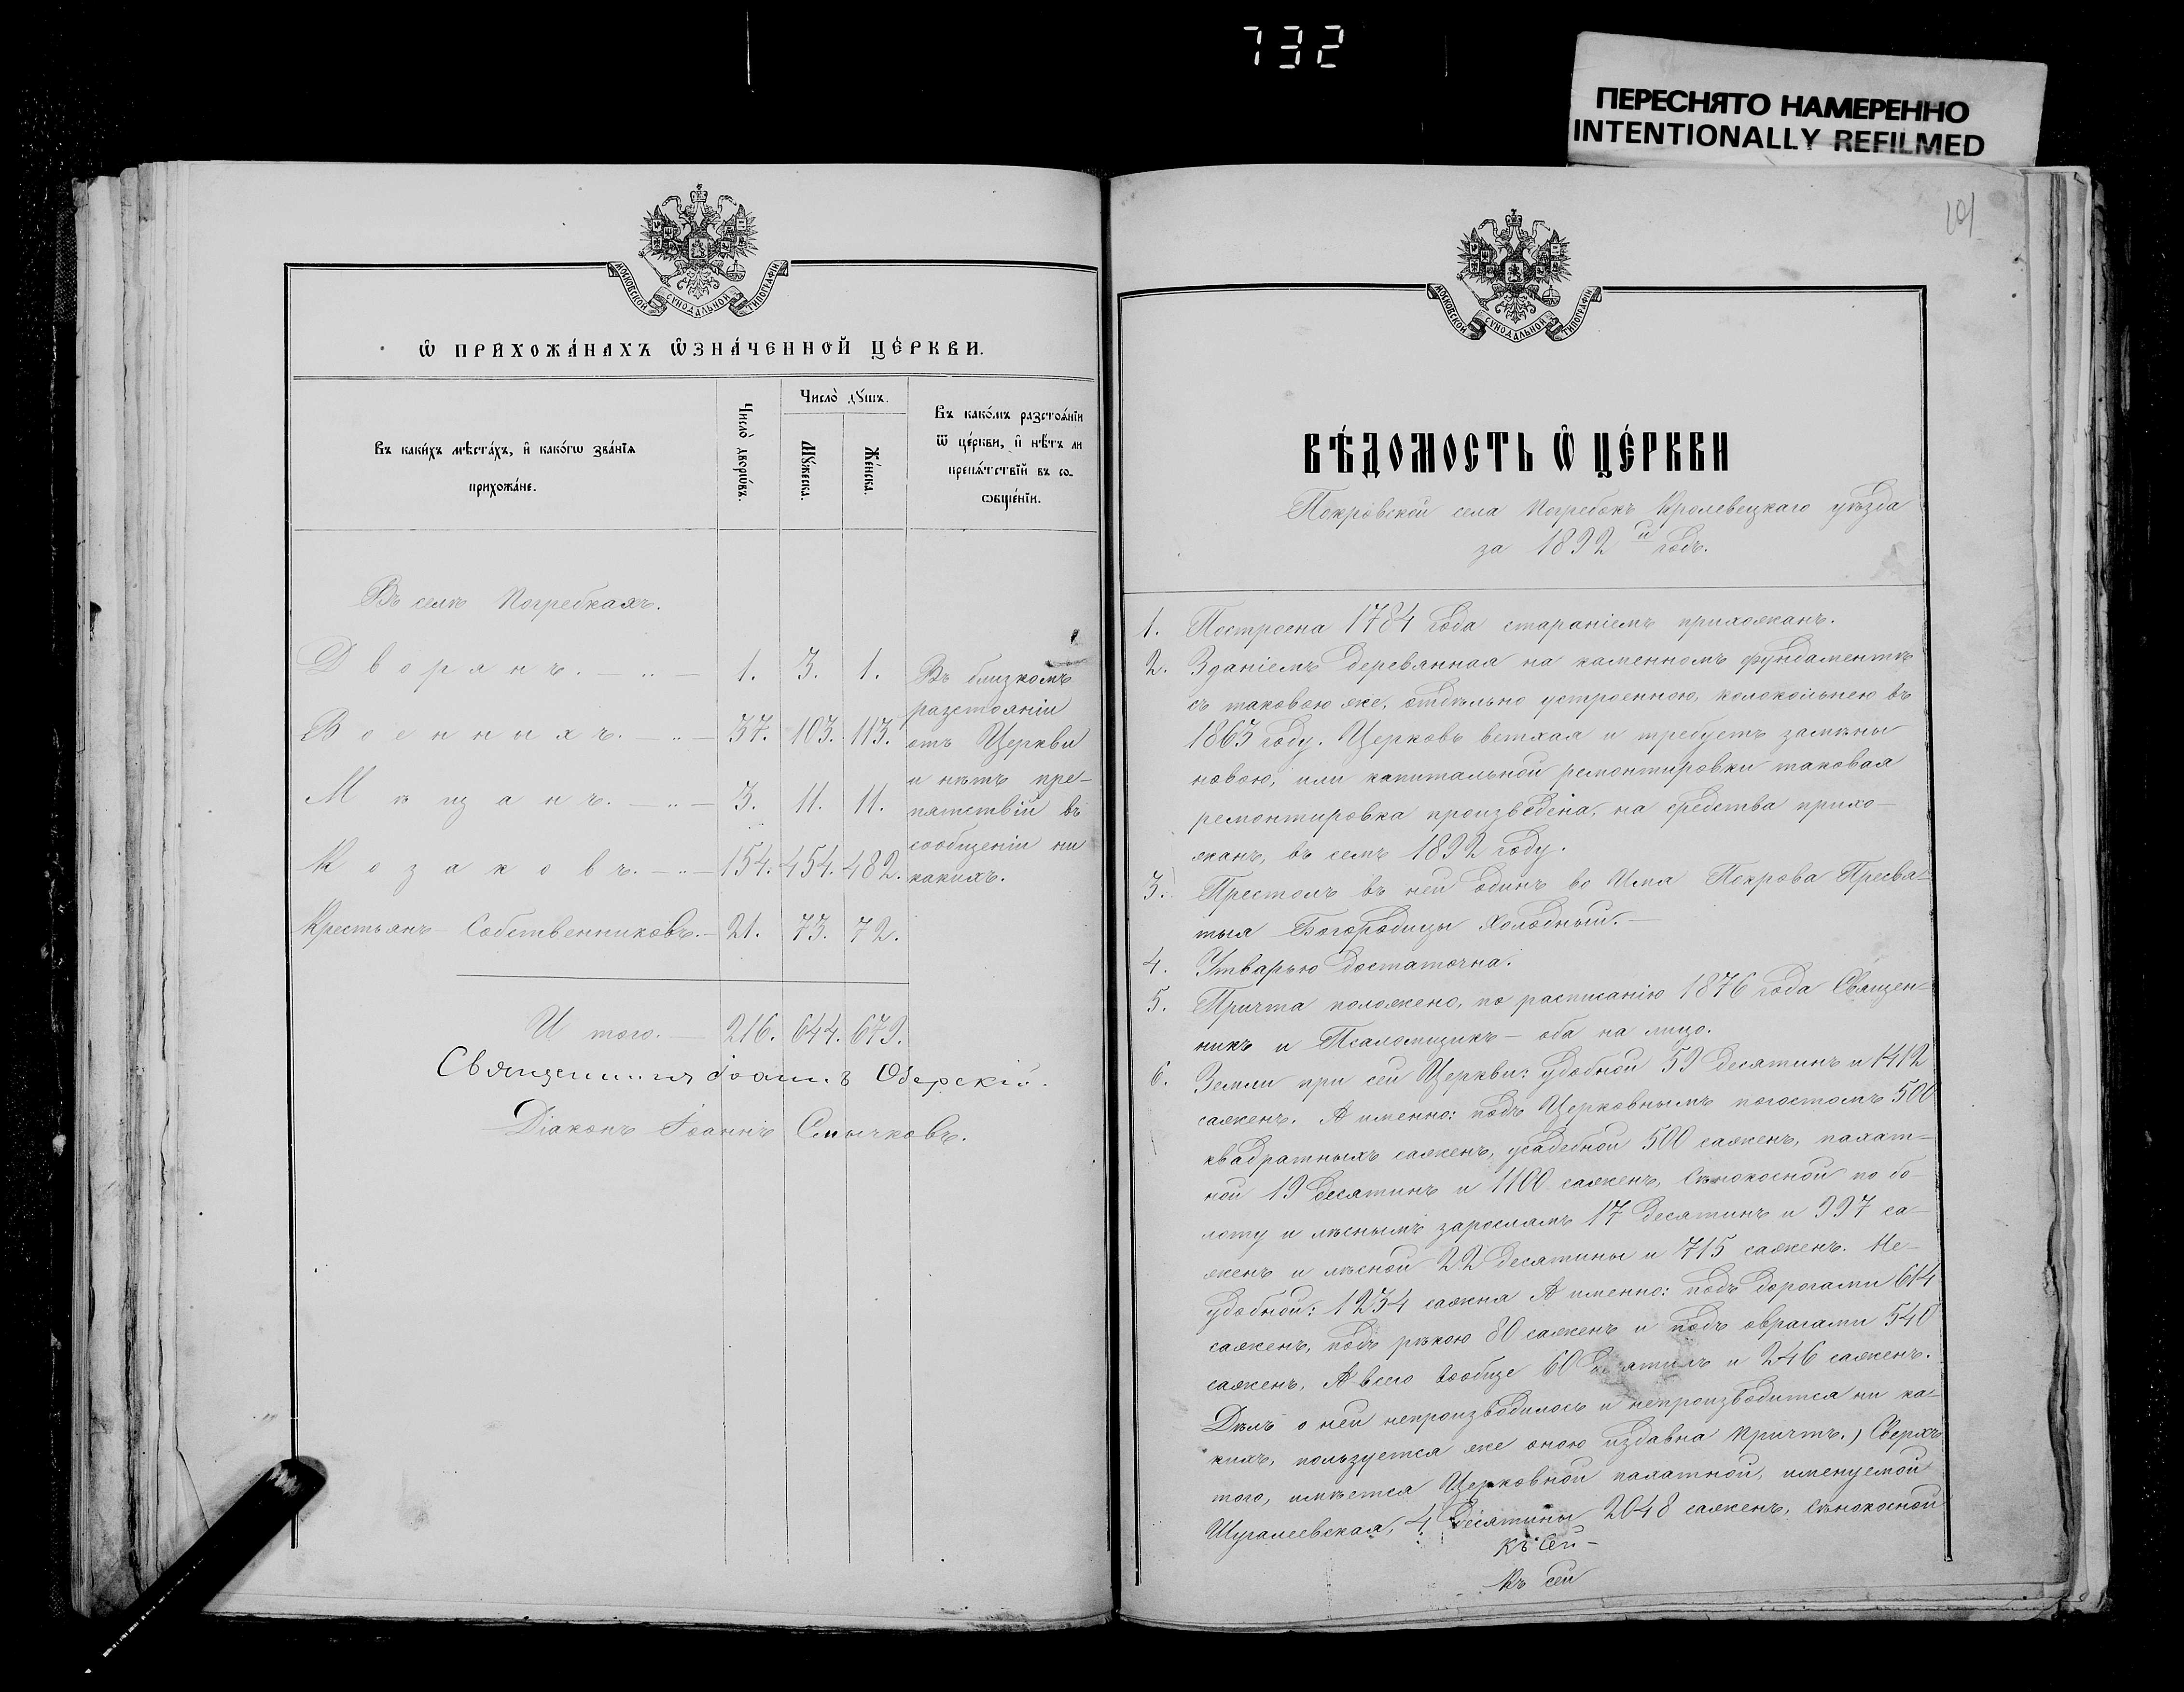 732
ПЕРЕСНЯТО НАМЕРЕННО
INTENTIONALLY REFILMED
101
МОСКОВСКОЙ СѴНОДАЛЬНОЙ ТИПОГРАФІИ
Ѡ ПРИХОЖА́НАХЪ Ѡ҆ЗНА́ЧЕННОЙ ЦЕ́РКВИ.
Въ каки́хъ мѣста́хъ, и҆ како́гѡ зва́нїѧ прихожа́не.
Число̀ дворѡ́въ.
Число̀ дꙋшъ.
Мꙋ́жеска.
Же́нска.
Въ како́мъ разстоѧ́нїи
ѿ це́ркви, и҆ нѣ́тъ ли
препѧ́тствїй въ со-
ѻбще́нїи.
Въ селѣ Погребкахъ.
Дворянъ. — „ — 1. 3. 1.
Военныхъ. — „ — 37. 103. 113.
Мѣщанъ. — „ — 3. 11. 11.
Козаковъ. — „ — 154. 454. 482.
Крестьянъ Собственниковъ. — 21. 73. 72.
Въ близкомъ
разстояніи
отъ Церкви
и нѣтъ пре-
пятствій въ
сообщеніи ни
какихъ.
Итого. — 216. 644. 679.
Священникъ Іоаннъ Озерскій.
Діаконъ Іоаннъ Смычковъ.
МОСКОВСКОЙ СѴНОДАЛЬНОЙ ТИПОГРАФІИ
ВѢ́ДОМОСТЬ Ѡ ЦЕ́РКВИ
Покровской села Погребокъ Кролевецкаго уѣзда
за 1892й годъ.
1. Построена 1784 года стараніемъ прихожанъ.
2. Зданіемъ деревянная на каменномъ фундаментѣ
съ таковою же, отдѣльно устроенною, колокольнею въ
1863 году. Церковь ветхая и требуетъ замѣны
новою, или капитальной ремонтировки таковая
ремонтировка произведена, на средства прихо-
жанъ, въ семъ 1892 году.
3. Престолъ въ ней одинъ во Имя Покрова Пресвя-
тыя Богородицы Холодный. —
4. Утварью достаточна.
5. Причта положено, по расписанію 1876 года Священ-
никъ и Псаломщикъ — оба на лицо.
6. Земли при сей Церкви: удобной 59 десятинъ и 1412
саженъ. А именно: подъ Церковнымъ погостомъ 500
квадратныхъ саженъ, усадебной 500 саженъ, пахат-
ной 19 десятинъ и 1100 саженъ, Сѣнокосной по бо-
лоту и лѣснымъ зарослямъ 17 десятинъ и 997 са-
женъ и лѣсной 22 десятины и 715 саженъ. Не-
удобной: 1234 сажня А именно: подъ дорогами 614
саженъ, подъ рѣкою 80 саженъ и подъ оврагами 540
саженъ, А всего вообще 60 десятинъ и 246 саженъ.
Дѣлъ о ней непроизводилось и непроизводится ни ка-
кихъ, пользуется же оною издавна Причтъ.) Сверхъ
того, имѣется Церковной пахатной, именуемой
Шугалеевская, 4 десятины 2048 саженъ, Сѣнокосной
къ Сей —
Къ сей